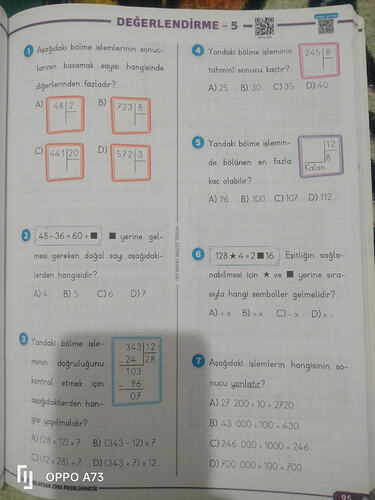 DEĞERLENDİRME - 5
1 Aşağıdaki bölme işlemlerinin sonuç-
larının basamak sayısı hangisinde
diğerlerinden fazladır?
A) 48 2 B) 723 8
C) 441 20 D) 572 3
2 48 - 36 = 60 ÷ ■ ■ yerine gel-
mesi gereken doğal sayı aşağıdaki-
lerden hangisidir?
A) 4 B) 5 C) 6 D) 7
3 Yandaki bölme işle-
minin doğruluğunu
kontrol etmek için
aşağıdakilerden han-
gisi yapılmalıdır?
343 12
- 24 28
103
- 96
07
A) (28 × 12) × 7 B) (343 - 12) × 7
C) (12 × 28) + 7 D) (343 + 7) × 12
4 Yandaki bölme işleminin
tahminî sonucu kaçtır?
245 8
A) 25 B) 30 C) 35 D) 40
5 Yandaki bölme işlemin-
de bölünen en fazla
kaç olabilir?
12
8
Kalan
A) 96 B) 100 C) 107 D) 112
6 128 ★ 4 = 2 ■ 16 Eşitliğin sağla-
nabilmesi için ★ ve ■ yerine sıra-
sıyla hangi semboller gelmelidir?
A) ÷ × B) ÷ × C) - × D) × ÷
7 Aşağıdaki işlemlerin hangisinin so-
nucu yanlıştır?
A) 27 200 ÷ 10 = 2720
B) 43 000 ÷ 100 = 430
C) 246 000 ÷ 1000 = 246
D) 700 000 ÷ 100 = 700
95
KOLAYDAN ZORA PROBLEMMATİK
OPPO A73